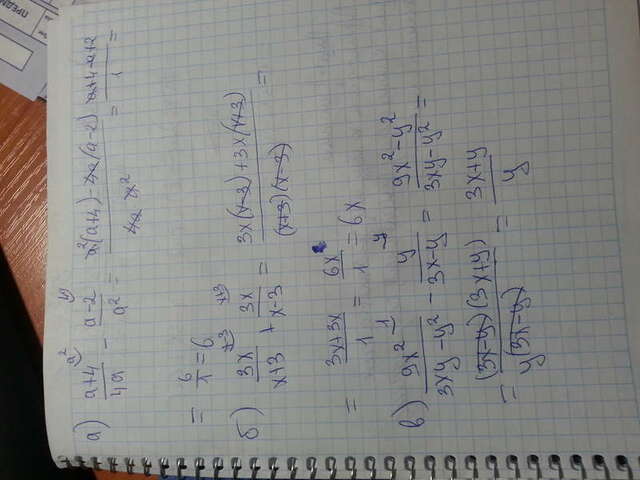 а) (a+4)/4a - (a-2)/a² = (a²(a+4)-4a(a-2))/(4a · a²) = (a+4-a+2)/1 =
= 6/1 = 6
б) 3x/(x+3) + 3x/(x-3) = (3x(x-3)+3x(x+3))/((x+3)(x-3)) =
= (3x+3x)/1 = 6x/1 = 6x
в) 9x²/(3xy-y²) - y/(3x-y) = (9x²-y²)/(3xy-y²) =
= (3x-y)(3x+y)/(y(3x-y)) = (3x+y)/y